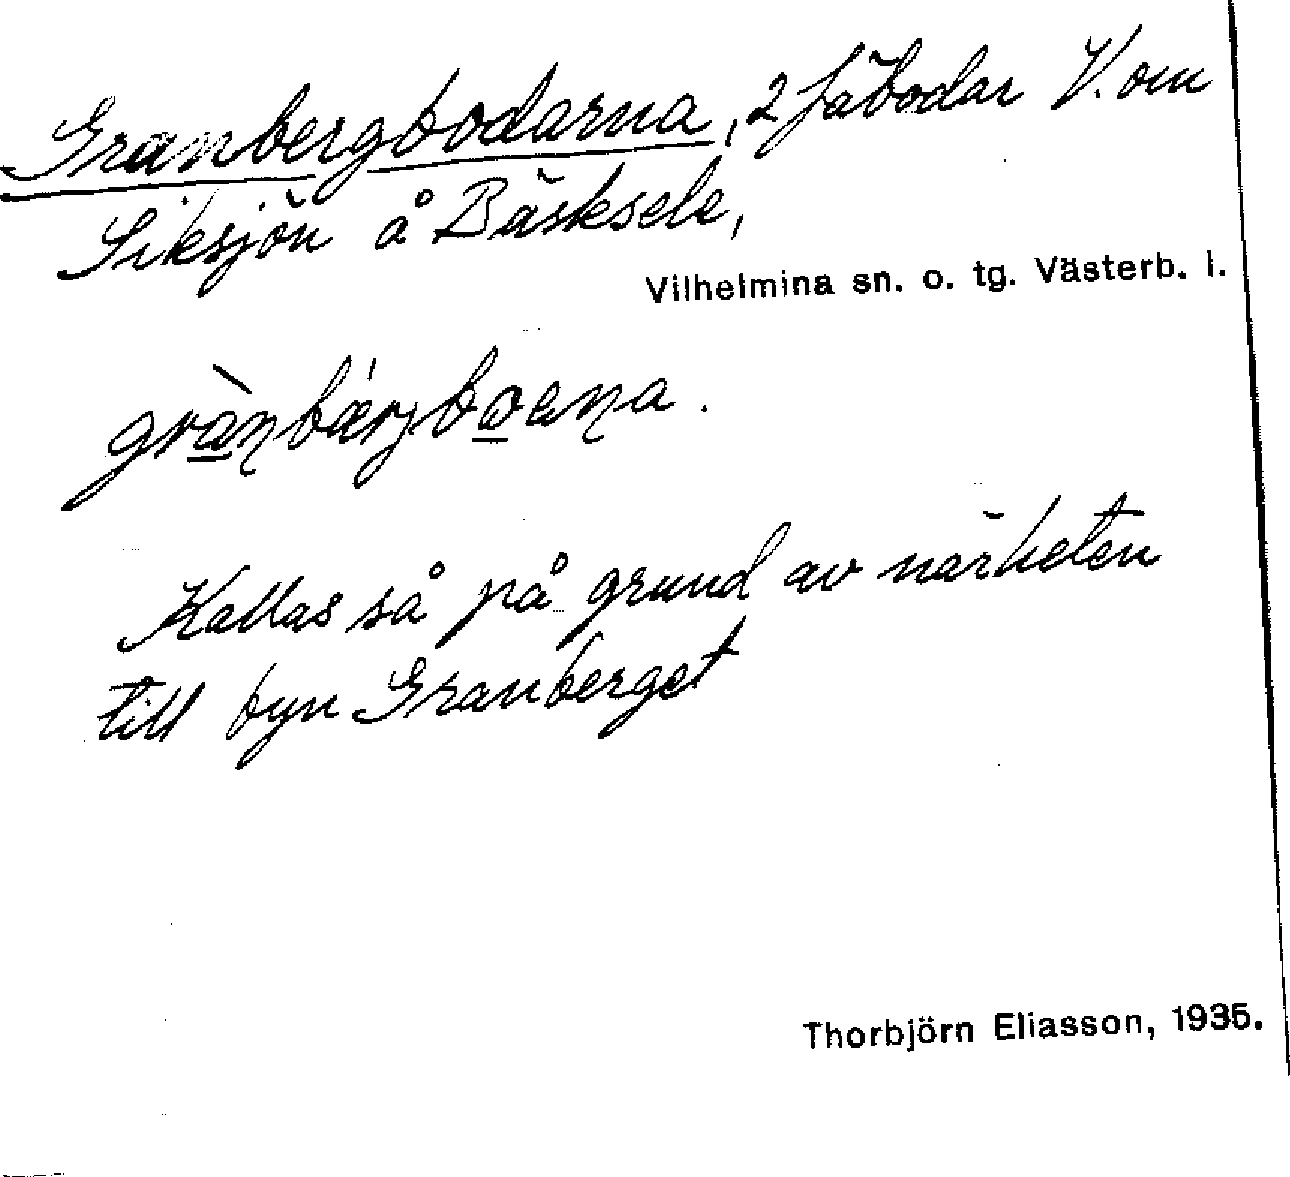 Granbergbodarna, 2 fäbodar V. om
Siksjön å Bäsksele,
Vilhelmina sn. o. tg. Västerb. l.
grànbǽrjboena.
Kallas så på grund av närheten
till byn Granberget
Thorbjörn Eliasson, 1935.